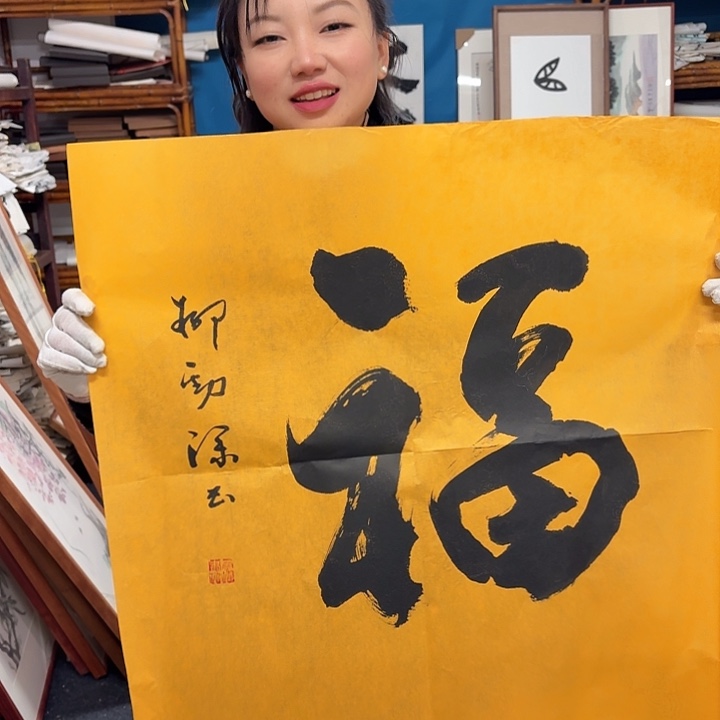 福
柳勁深书